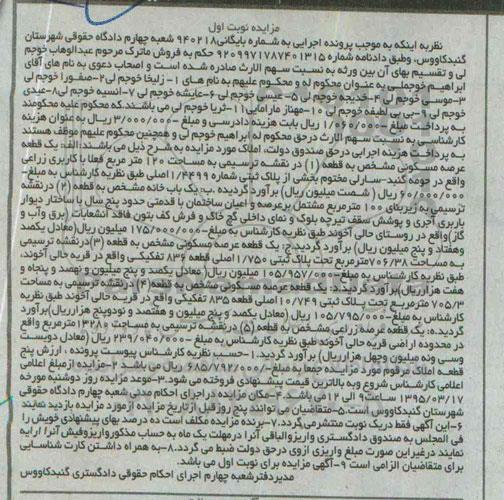 مزایده نوبت اول
نظربه اینکه به موجب پرونده اجرایی به شماره بایگانی۹۴۰۲۱۸ شعبه چهارم دادگاه حقوقی شهرستان
گنبدکاووس، وطبق دادنامه شماره ۹۲۰۹۹۷۱۷۸۷۴۰۱۳۱۵ حکم به فروش ماترک مرحوم عبدالوهاب خوجم
لی و تقسیم بهای آن بین ورثه به نسبت سهم الارث صادره شده است و اصحاب دعوی به نام های آقای
ابراهیم خوجملی به عنوان محکوم له و محکوم علیهم به نام های ۱- زلیخا خوجم لی۲-صفورا خوجم لی
۳-موسی خوجم لی ۴-خدیجه خوجم لی ۵- عیسی خوجم لی ۶-عایشه خوجم لی ۷-انسیه خوجم لی۸-عیدی
خوجم لی ۹-بی بی لطیفه خوجم لی ۱۰-مهناز مارامایی۱۱-ثریا خوجم لی می باشند.که محکوم علیه محکومند
به پرداخت مبلغ ۱/۰۶۰/۰۰۰ ریال بابت هزینه دادرسی و مبلغ ۳/۰۰۰/۰۰۰- ریال به عنوان هزینه
کارشناسی به نسبت سهم الارث درحق محکوم له ابراهیم خوجم لی و همچنین محکوم علیهم موظف هستند
به پرداخت هزینه اجرایی درحق صندوق دولت، املاک مورد مزایده به شرح ذیل می باشند:الف: یک قطعه
عرصه مسکونی مشخص به قطعه (۱) در نقشه ترسیمی به مساحت ۱۲۰ متر مربع فعلا با کاربری زراعی
واقع در حومه گنبد-سارلی مختوم بخشی از پلاک ثبتی شماره ۱/۴۴۹۹اصلی طبق نظریه کارشناس به مبلغ-
۶۰/۰۰۰/۰۰۰ ریال (شصت میلیون ریال) برآورد گردیده .ب: یک باب خانه مشخص به قطعه (۲) درنقشه
ترسیمی به زیربنای ۱۰۰ مترمربع مشتمل برعرصه و اعیان ساختمان با قدمتی حدود پنج سال با ساختار دیوار
باربری آجری و پوشش سقف تیرچه بلوک و نمای داخلی گچ خاک و فرش کف بتون فاقد انشعابات (برق وآب و
گاز) واقع در روستای حالی آخوند طبق نظریه کارشناس به مبلغ-۱۷۵/۰۰۰/۰۰۰ ریال(معادل یکصد
وهفتاد و پنج میلیون ریال) برآورد گردید.ج: یک قطعه عرصه مسکونی مشخص به قطعه (۳)درنقشه ترسیمی
به مساحت ۷۰۶/۳۸مترمربع تحت پلاک ثبتی ۱/۷۵۰اصلی قطعه ۸۳۶ تفکیکی واقع در قریه حالی آخوند،
طبق نظریه کارشناس به مبلغ-۱۰۵/۹۵۷/۰۰۰ میلیون ریال(معادل یکصد و پنج میلیون و نهصد و پنجاه و
هفت هزارریال)برآورد گردید.د: یک قطعه عرصه مسکونی مشخص به قطعه(۴) درنقشه ترسیمی به مساحت
۷۰۵/۳ مترمربع تحت پلاک ثبتی ۱۰/۷۴۹اصلی قطعه ۸۳۵ تفکیکی واقع در قریه حالی آخوند طبق نظریه
کارشناس به مبلغ-۱۰۵/۷۹۵/۰۰۰ ریال (معادل یکصد و پنج میلیون و هفتصد و نودوپنج هزارریال)برآورد
گردیده.ه: یک قطعه عرصه زراعی مشخص به قطعه (۵) درنقشه ترسیمی به مساحت ۱۳۲۸۰مترمربع واقع
در محدوده اراضی قریه حالی آخوند طبق نظریه کارشناس به مبلغ-۲۳۹/۰۴۰/۰۰۰ ریال (معادل دویست
وسی ونه میلیون وچهل هزارریال) برآورد گردید.۱-حسب نظریه کارشناس پیوست پرونده ، ارزش پنج
قطعه املاک مرقوم مورد مزایده جمعا به مبلغ-۶۸۵/۷۹۲/۰۰۰/ ریال می باشد ۲-مزایده ازمبلغ اعلامی
اعلامی کارشناس شروع وبه بالاترین قیمت پیشنهادی فروخته می شود.۳-موعد مزایده روز دوشنبه مورخه
۱۳۹۵/۰۳/۱۷ ساعت۹ الی ۱۲می باشد.۴-مکان مزایده دراجرای احکام مدنی شعبه چهارم دادگاه حقوقی
شهرستان گنبدکاووس است.۵-متقاضیان می توانند پنج روز قبل ازتاریخ مزایده ازمورد مزایده بازدید نمایند
۶-این آگهی فقط دریک نوبت منتشرمی گردد.۷-برنده مزایده مکلف است ده درصد بهای پیشنهادی خویش را
فی المجلس به صندوق دادگستری واریزوالباقی آنرا درمهلت یک ماه به حساب مذکورواریزوفیش آنرا ارایه
نمایند درغیراین صورت مبلغ واریزی ازوی درحق دولت ضبط می گردد.۸-به همراه داشتن کارت شناسایی
برای متقاضیان الزامی است ۹-آگهی مزایده برای نوبت اول می باشد.
مدیردفترشعبه چهارم اجرای احکام حقوقی دادگستری گنبدکاووس